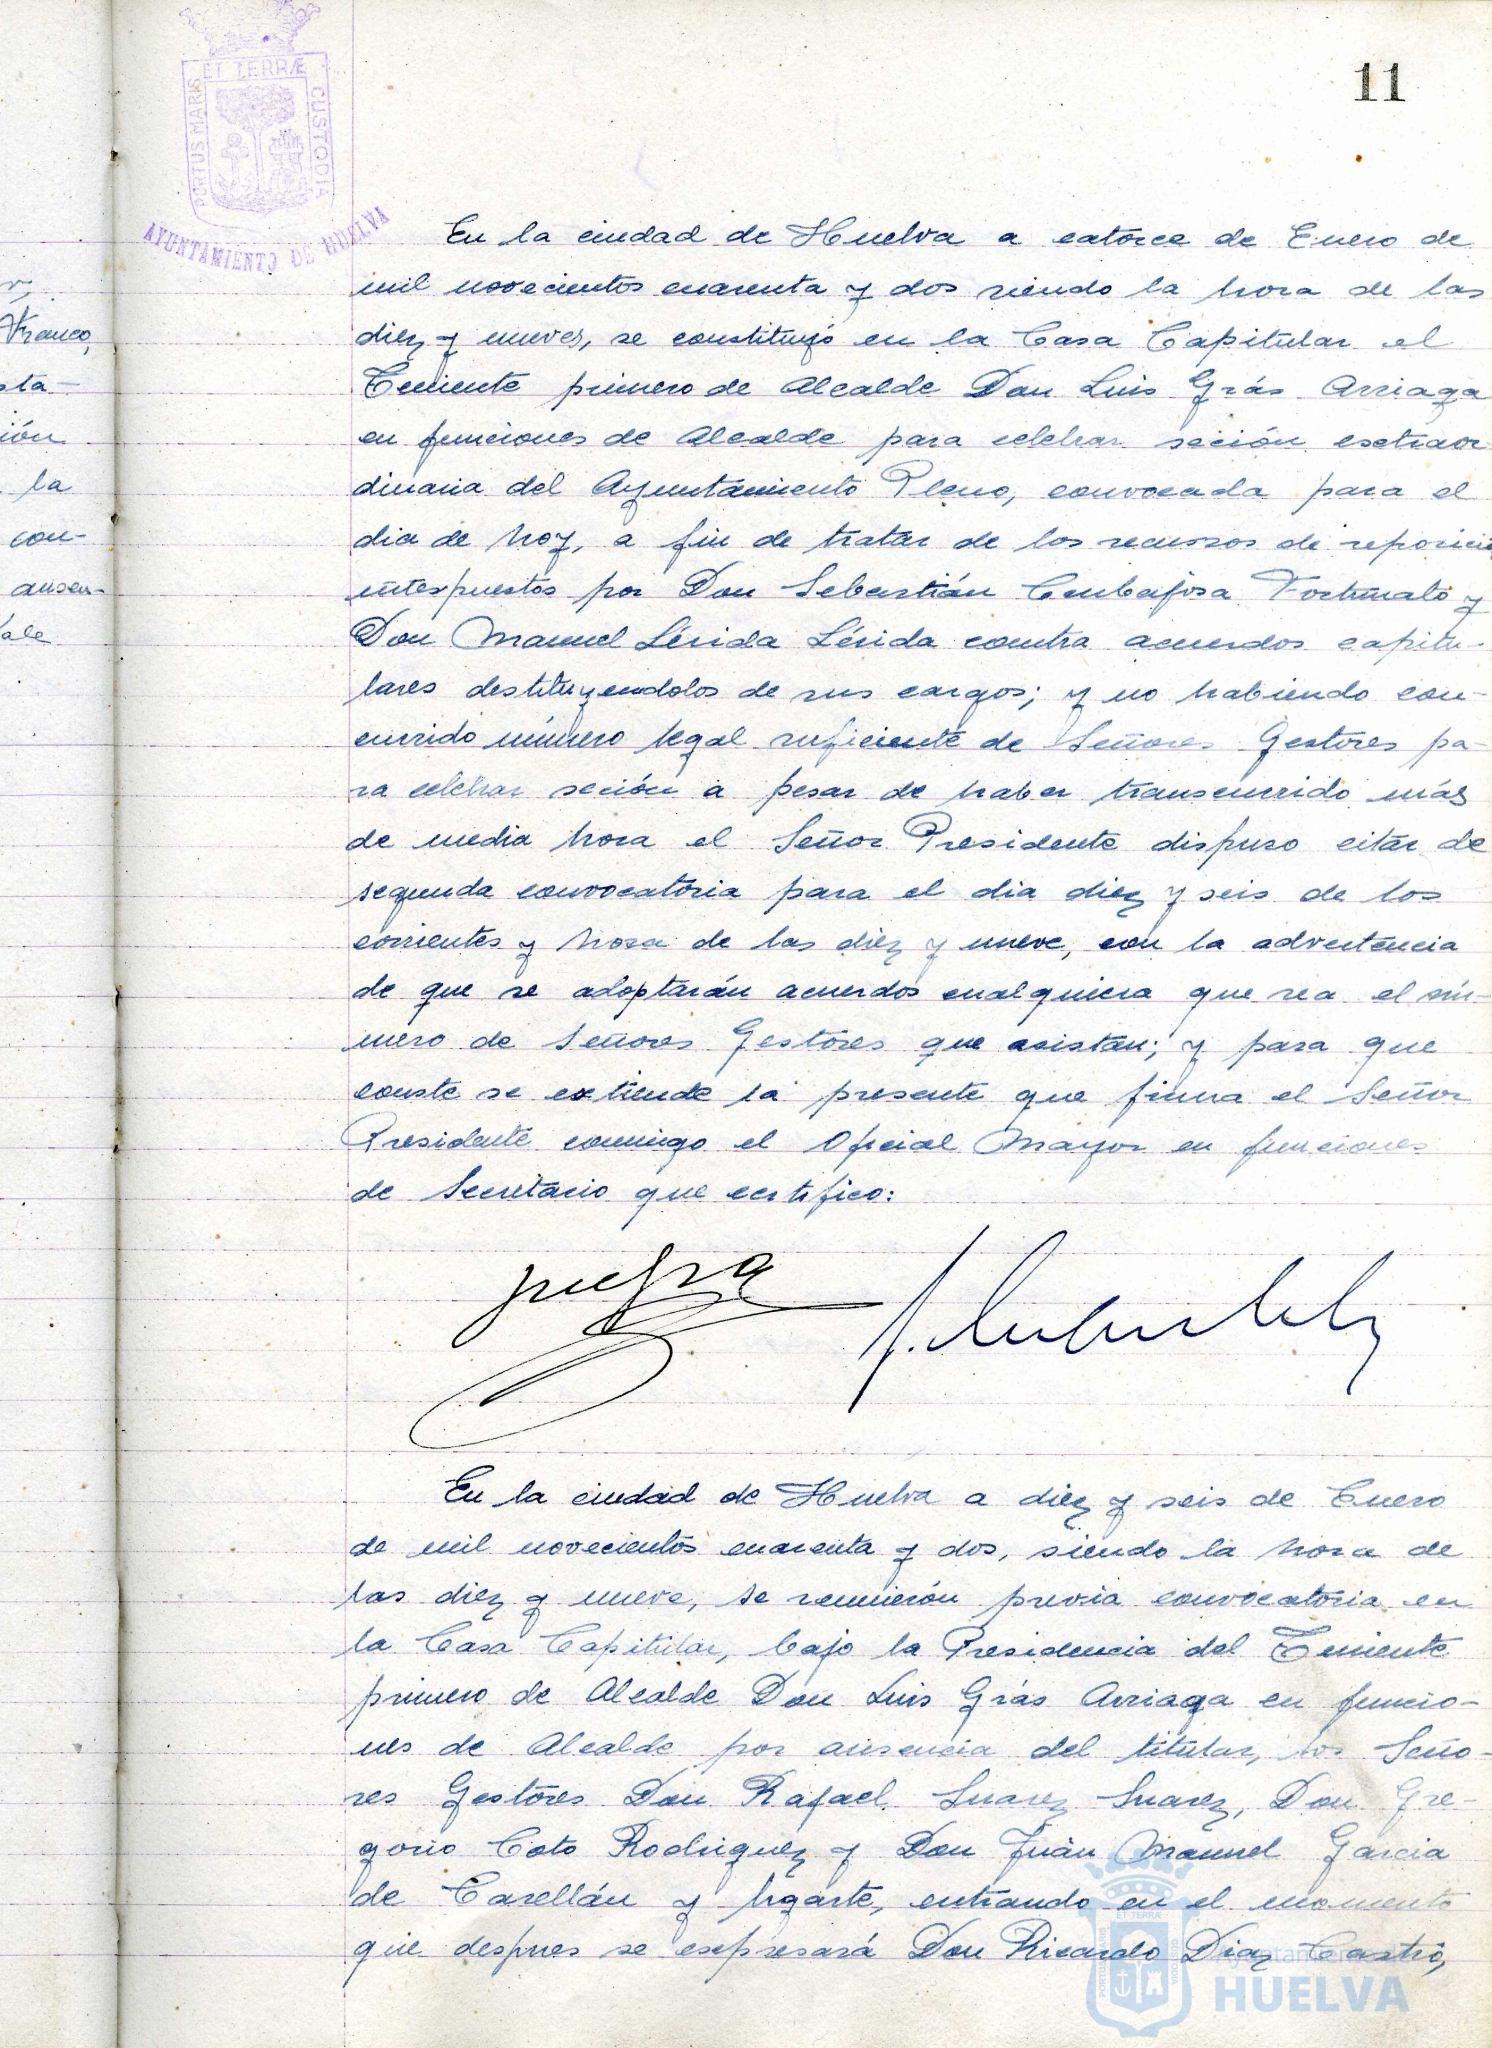 11
PORTUS MARIS ET TERRÆ CUSTODIA
AYUNTAMIENTO DE HUELVA
Franco,
sta-
ión
la
con-
ausen-
En la ciudad de Huelva a catorce de Enero de
mil novecientos cuarenta y dos siendo la hora de las
diez y nueve, se constituyó en la Casa Capitular el
Teniente primero de Alcalde Don Luis Grás Arriaga
en funciones de Alcalde para celebrar seción extraor
dinaria del Ayuntamiento Pleno, convocada para el
dia de hoy, a fin de tratar de los recursos de reposición
interpuestos por Don Sebastián Carbajosa Fortunato y
Don Manuel Lérida Lérida contra acuerdos capitu-
lares destituyendolos de sus cargos; y no habiendo con-
currido número legal suficiente de Señores Gestores pa-
ra celebrar seción a pesar de haber transcurrido más
de media hora el Señor Presidente dispuso citar de
segunda convocatoria para el dia diez y seis de los
corrientes y hora de las diez y nueve, con la advertencia
de que se adoptarán acuerdos cualquiera que sea el nú-
mero de Señores Gestores que asistan; y para que
conste se extiende la presente que firma el Señor
Presidente conmigo el Oficial Mayor en funciones
de Secretario que certifico:
En la ciudad de Huelva a diez y seis de Enero
de mil novecientos cuarenta y dos, siendo la hora de
las diez y nueve, se reunierón previa convocatoria en
la Casa Capitular, bajo la Presidencia del Teniente
primero de Alcalde Don Luis Grás Arriaga en funcio-
nes de Alcalde por ausencia del titular, los Seño-
res Gestores Don Rafael Suarez Suarez, Don Gre-
gorio Coto Rodriguez y Don Juàn Manuel Garcia
de Casellán y Ugarte, entrando en el momento
que despues se expresará Don Ricardo Diaz Castro,
Ayuntamiento de
HUELVA